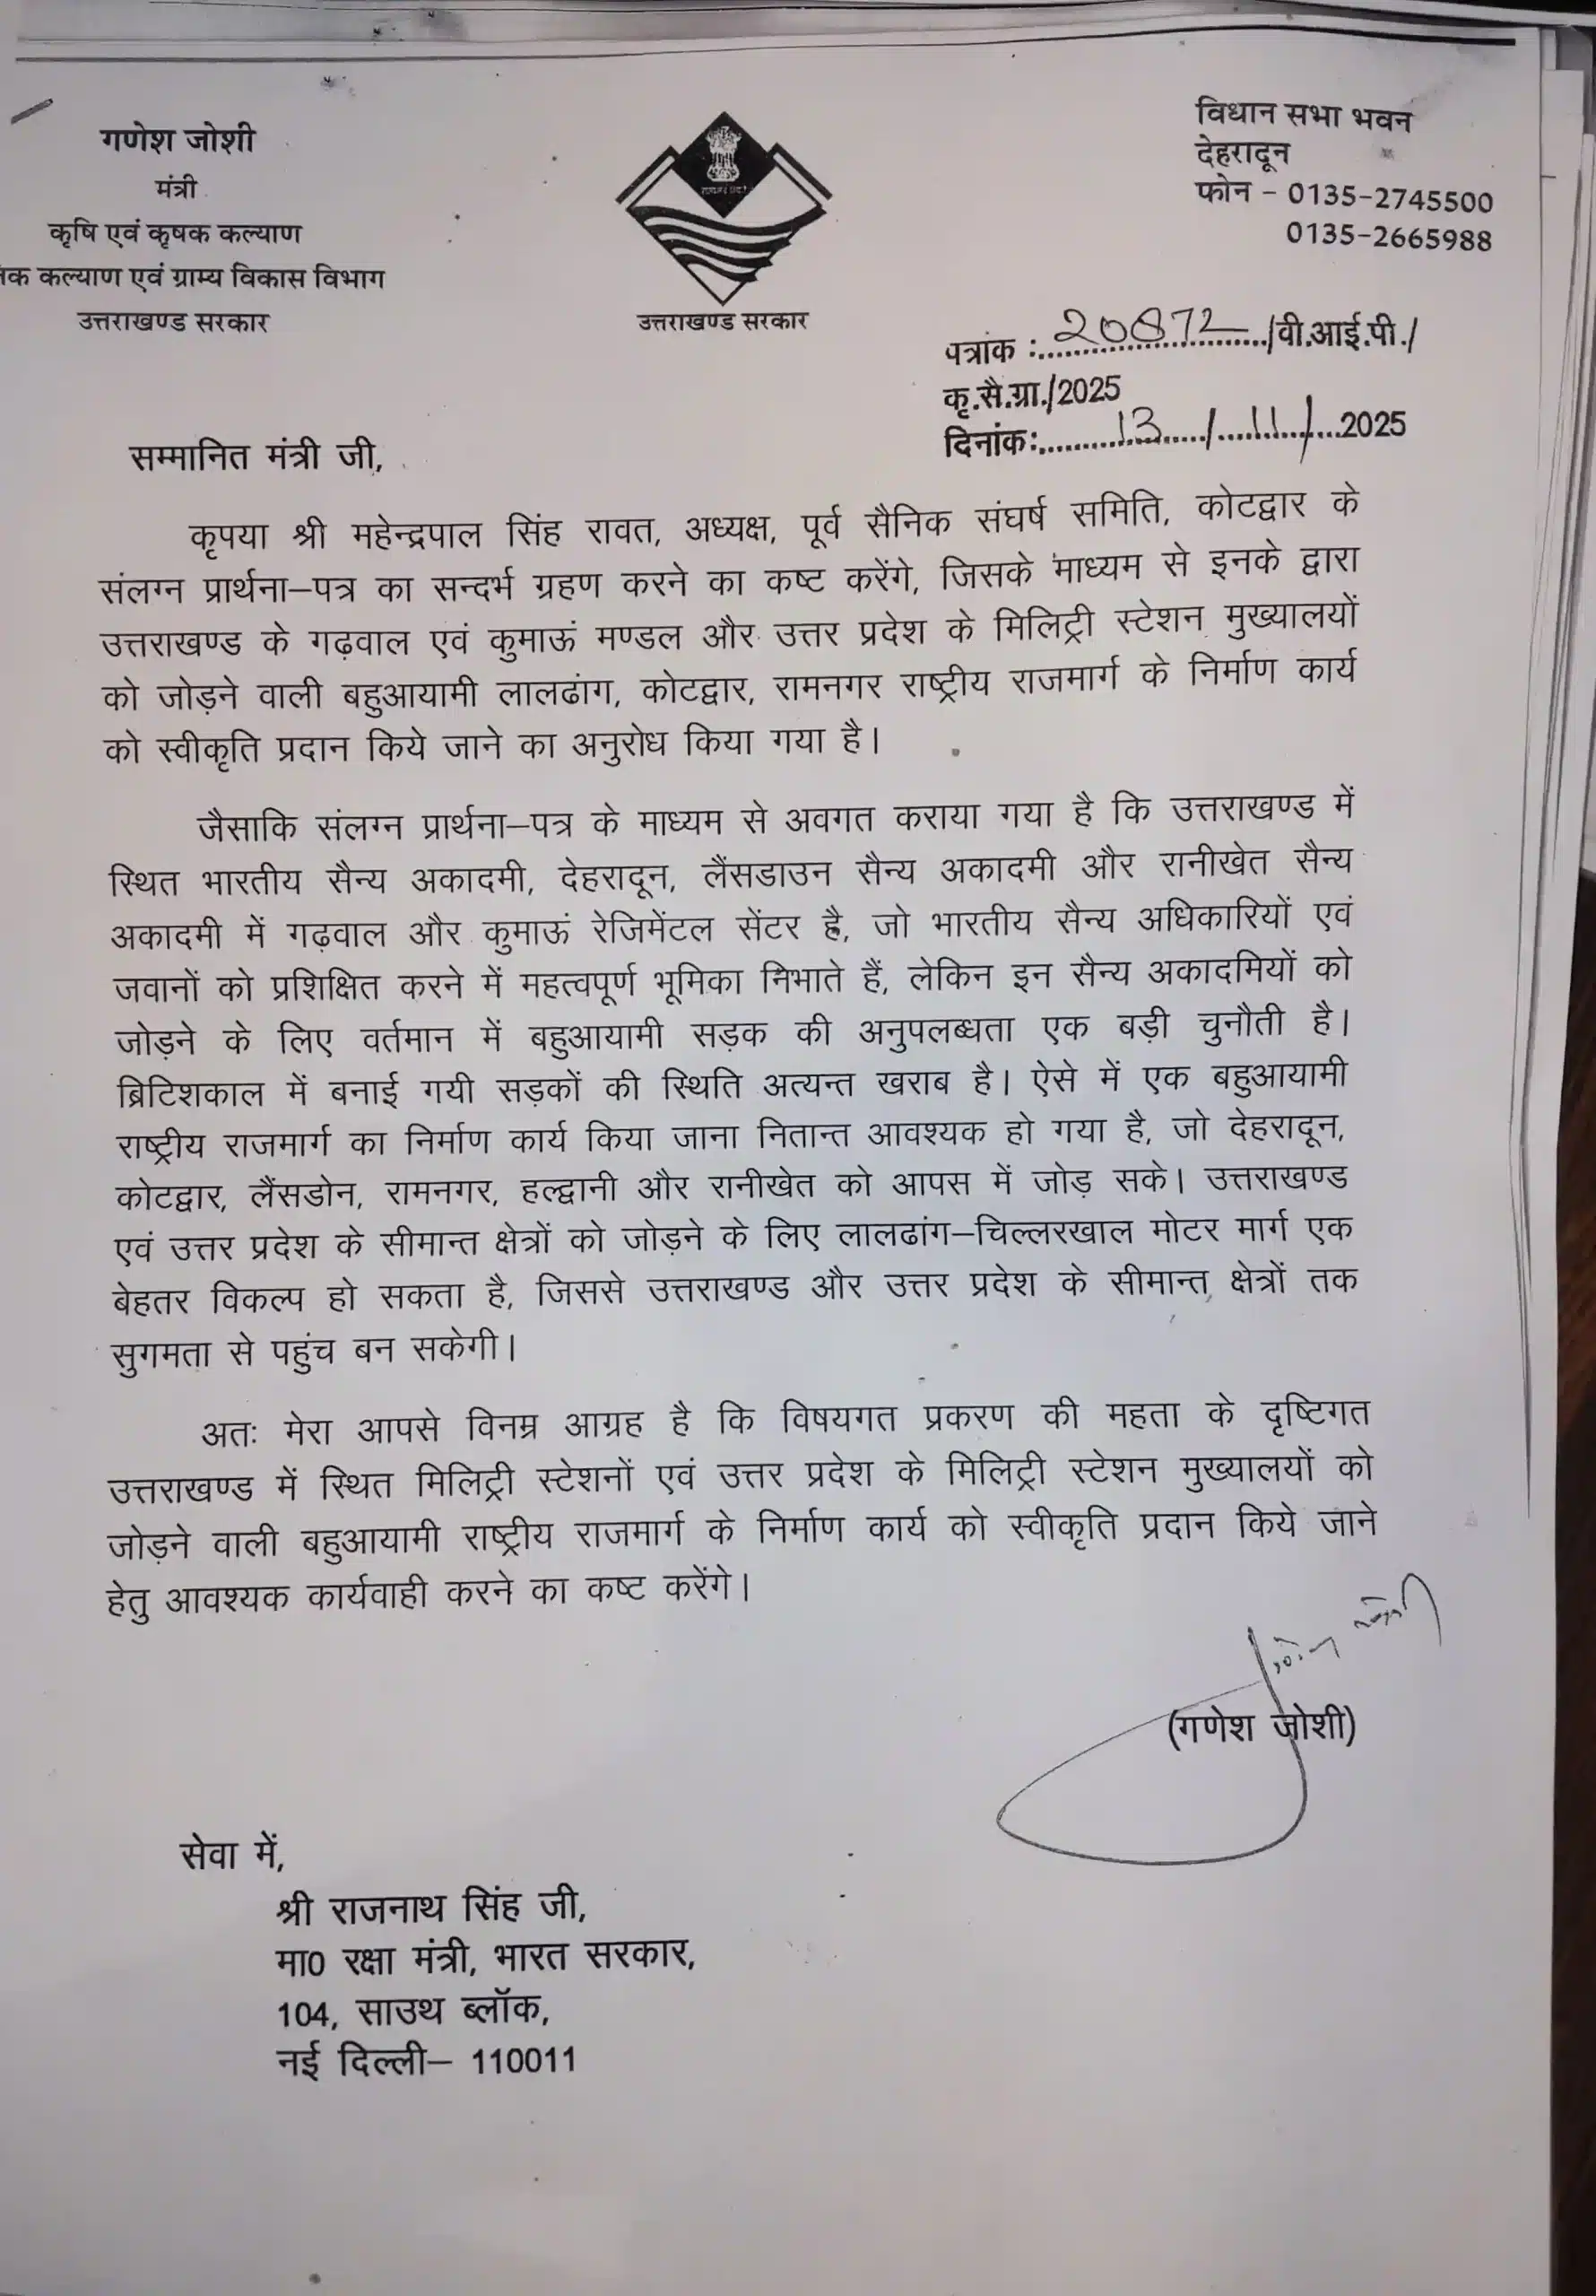 गणेश जोशी
मंत्री
कृषि एवं कृषक कल्याण
कल्याण एवं ग्राम्य विकास विभाग
उत्तराखण्ड सरकार
उत्तराखण्ड सरकार
विधान सभा भवन
देहरादून
फोन - 0135-2745500
0135-2665988
पत्रांक :.....20872...../वी.आई.पी./
कृ.सै.ग्रा./2025
दिनांक:.....13...../.....11...../2025
सम्मानित मंत्री जी,
कृपया श्री महेन्द्रपाल सिंह रावत, अध्यक्ष, पूर्व सैनिक संघर्ष समिति, कोटद्वार के
संलग्न प्रार्थना–पत्र का सन्दर्भ ग्रहण करने का कष्ट करेंगे, जिसके माध्यम से इनके द्वारा
उत्तराखण्ड के गढ़वाल एवं कुमाऊं मण्डल और उत्तर प्रदेश के मिलिट्री स्टेशन मुख्यालयों
को जोड़ने वाली बहुआयामी लालढांग, कोटद्वार, रामनगर राष्ट्रीय राजमार्ग के निर्माण कार्य
को स्वीकृति प्रदान किये जाने का अनुरोध किया गया है।
जैसाकि संलग्न प्रार्थना–पत्र के माध्यम से अवगत कराया गया है कि उत्तराखण्ड में
स्थित भारतीय सैन्य अकादमी, देहरादून, लैंसडाउन सैन्य अकादमी और रानीखेत सैन्य
अकादमी में गढ़वाल और कुमाऊं रेजिमेंटल सेंटर है, जो भारतीय सैन्य अधिकारियों एवं
जवानों को प्रशिक्षित करने में महत्वपूर्ण भूमिका निभाते हैं, लेकिन इन सैन्य अकादमियों को
जोड़ने के लिए वर्तमान में बहुआयामी सड़क की अनुपलब्धता एक बड़ी चुनौती है।
ब्रिटिशकाल में बनाई गयी सड़कों की स्थिति अत्यन्त खराब है। ऐसे में एक बहुआयामी
राष्ट्रीय राजमार्ग का निर्माण कार्य किया जाना नितान्त आवश्यक हो गया है, जो देहरादून,
कोटद्वार, लैंसडोन, रामनगर, हल्द्वानी और रानीखेत को आपस में जोड़ सके। उत्तराखण्ड
एवं उत्तर प्रदेश के सीमान्त क्षेत्रों को जोड़ने के लिए लालढांग–चिल्लरखाल मोटर मार्ग एक
बेहतर विकल्प हो सकता है, जिससे उत्तराखण्ड और उत्तर प्रदेश के सीमान्त क्षेत्रों तक
सुगमता से पहुंच बन सकेगी।
अतः मेरा आपसे विनम्र आग्रह है कि विषयगत प्रकरण की महता के दृष्टिगत
उत्तराखण्ड में स्थित मिलिट्री स्टेशनों एवं उत्तर प्रदेश के मिलिट्री स्टेशन मुख्यालयों को
जोड़ने वाली बहुआयामी राष्ट्रीय राजमार्ग के निर्माण कार्य को स्वीकृति प्रदान किये जाने
हेतु आवश्यक कार्यवाही करने का कष्ट करेंगे।
(गणेश जोशी)
सेवा में,
श्री राजनाथ सिंह जी,
मा0 रक्षा मंत्री, भारत सरकार,
104, साउथ ब्लॉक,
नई दिल्ली– 110011